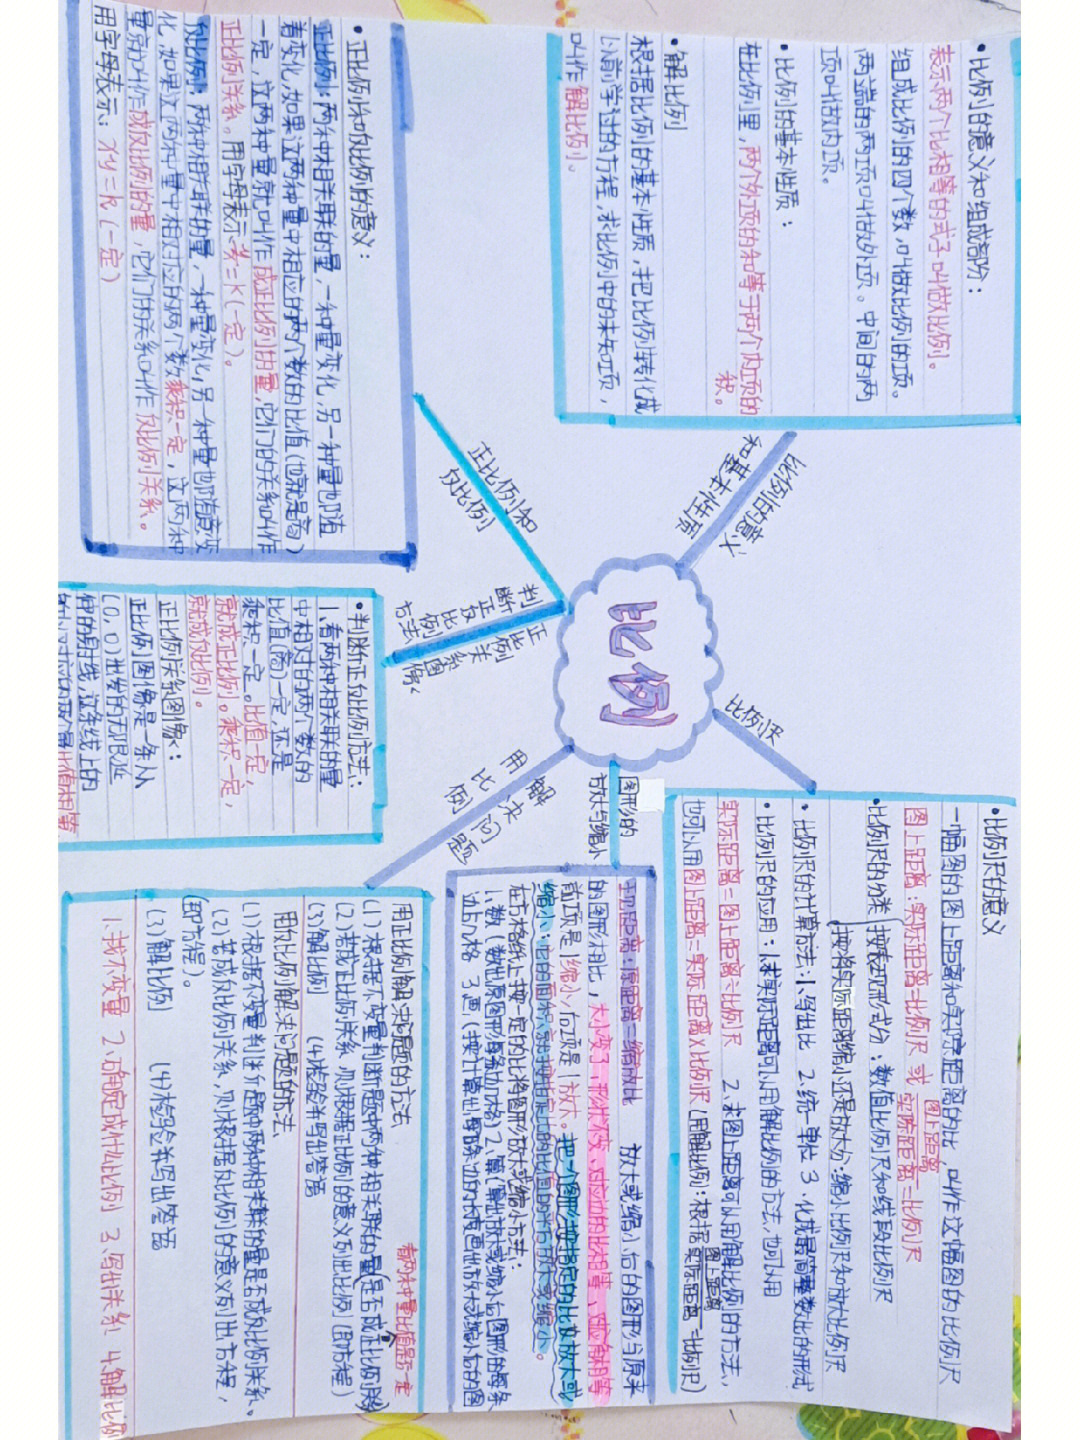 比例
比例的意义
和基本性质
•比例的意义和组成部份：
表示两个比相等的式子叫做比例。
组成比例的四个数，叫做比例的项。
两端的两项叫做外项。中间的两
项叫做内项。
•比例的基本性质：
在比例里，两个外项的和等于两个内项的
积。
•解比例
根据比例的基本性质，把比例转化成
以前学过的方程，求比例中的未知项，
叫作解比例。
比例尺
•比例尺的意义
一幅图的图上距离和实际距离的比，叫作这幅图的比例尺
图上距离：实际距离=比例尺 或 图上距离/实际距离=比例尺
•比例尺的分类 按表现形式分：数值比例尺和线段比例尺
按将实际距离缩小还是放大分：缩小比例尺和放大比例尺
•比例尺的计算方法：1.写出比 2.统一单位 3.化成最简整数比的形式
•比例尺的应用：1.求实际距离可以用解比例的方法，也可以用
实际距离=图上距离÷比例尺 2.求图上距离可以用解比例的方法，
也可以用图上距离=实际距离×比例尺(用解比例：根据图上距离/实际距离=比例尺)
图形的
放大与缩小
距离：原距离=缩放比 放大或缩小后的图形与原来
的图形相比，大小变了，形状不变，对应边的比相等，对应角相等
前项是1缩小，后项是1放大。把一个图形按指定的比放大或
缩小：它的面积就按指定的比的平方放大或缩小。
在方格纸上按一定的比将图形放大或缩小方法：
1.数(数出原图形每条边几格) 2.算(算出放大或缩小后图形的每条
边占几格 3.画(按计算出每条边的长度画出放大或缩小后的图
用比例
解决问题
用正比例解决问题的方法
看两种量比值是否一定
(1)根据不变量判断题中两种相关联的量是否成正比例关系
(2)若成正比例关系，则根据正比例的意义列出比例(即方程)
(3)解比例 (4)检验并写出答语
用反比例解决问题的方法
(1)根据不变量判断题中两种相关联的量是否成反比例关系。
(2)若成反比例关系，则根据反比例的意义列出方程，
(即方程)。
(3)解比例 (4)检验并写出答语
1.找不变量 2.确定成什么比例 3.写出关系 4.解比例
判断正反比例方法
正比例关系图像
•判断正反比例方法：
1.看两种相关联的量
中相对的两个数的
比值(商)一定，还是
乘积一定。比值一定，
就成正比例。乘积一定，
就成反比例。
正比例关系图像：
正比例图像是一条从
(0,0)出发的无限延
伸的射线，这条线上的
正比例和
反比例
•正比例和反比例的意义：
正比例：两种相关联的量，一种量变化，另一种量也随
着变化，如果这两种量中相应的两个数的比值(也就是商)
一定，这两种量就叫作成正比例的量，它们的关系叫作
正比例关系。用字母表示：y/x=k(一定)。
反比例：两种相关联的量，一种量变化，另一种量也随意变
化，如果这两种量中相对应的两个数乘积一定，这两种
量就叫作成反比例的量，它们的关系叫作反比例关系。
用字母表示：xy=k(一定)